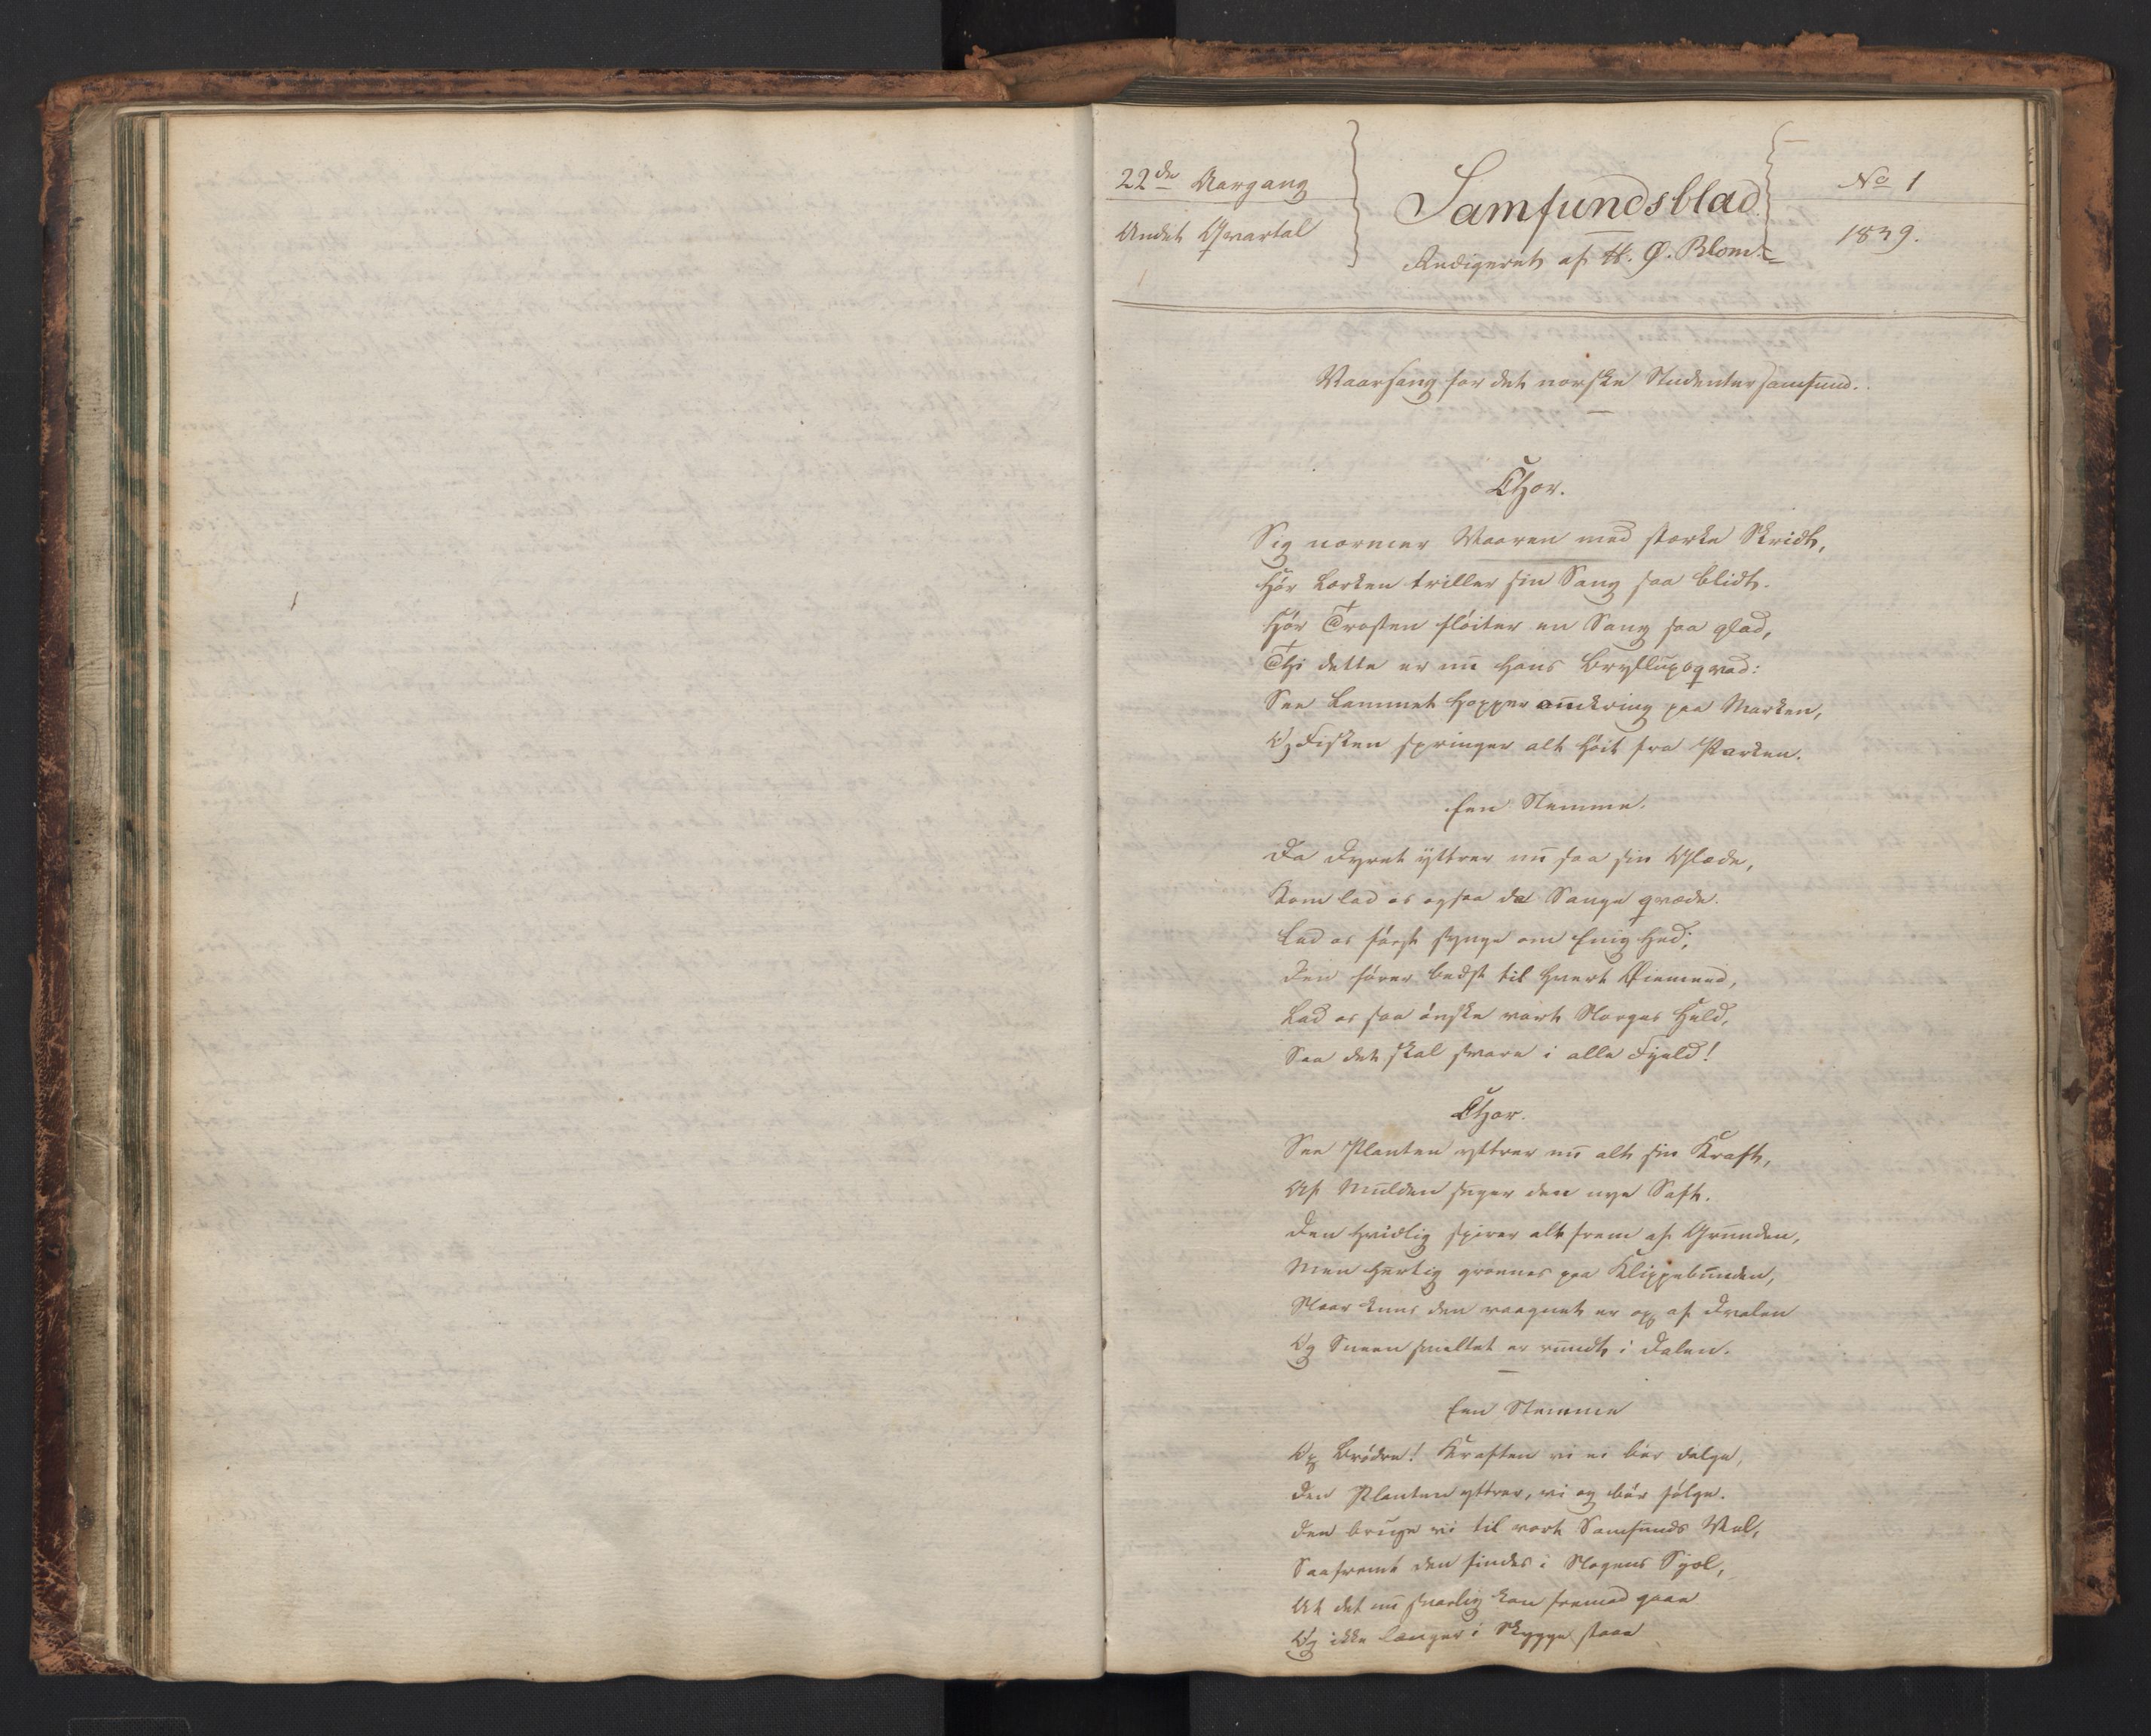 22de Aargang
Andet Qvartal
Samfundsblad.
Redigeret af H. Ø. Blom.
No 1
1839.
Vaarsang for det norske Studentersamfund.
Chor.
Sig nærmer Vaaren med stærke Skridt,
Hør Lærken triller sin Sang saa blidt.
Hør Trosten fløiter en Sang saa glad,
Thi dette er nu hans Bryllupsqvad:
See Lammet hopper omkring paa Marken,
Og Fisken springer alt høit fra Parken.
Een Stemme.
Da Dyret yttrer nu saa sin Glæde,
Kom lad os ogsaa da Sange qvæde.
Lad os først synge om Enighed;
Den fører bedst til hvert Øiemeed,
Lad os saa ønske vort Norges Held,
Saa det skal svare i alle Fjeld!
Chor.
See Planten yttrer nu alt sin Kraft,
Af Mulden suger den nye Saft.
Den hvidlig spirer alt frem af Grunden,
Men hurtig grønnes paa Klippebunden,
Naar kuns den vaagnet er op af Dvalen
Og Sneen smeltet er rundt i Dalen.
Een Stemme
Op Brødre! Kraften vi ei bør dølge,
Den Planten yttrer, vi og bør følge.
Den bruge vi til vort Samfunds Vel,
Saafremt den findes i Nogens Sjæl,
At det nu snarlig kan fremad gaae
Og ikke længer i Skygge staae